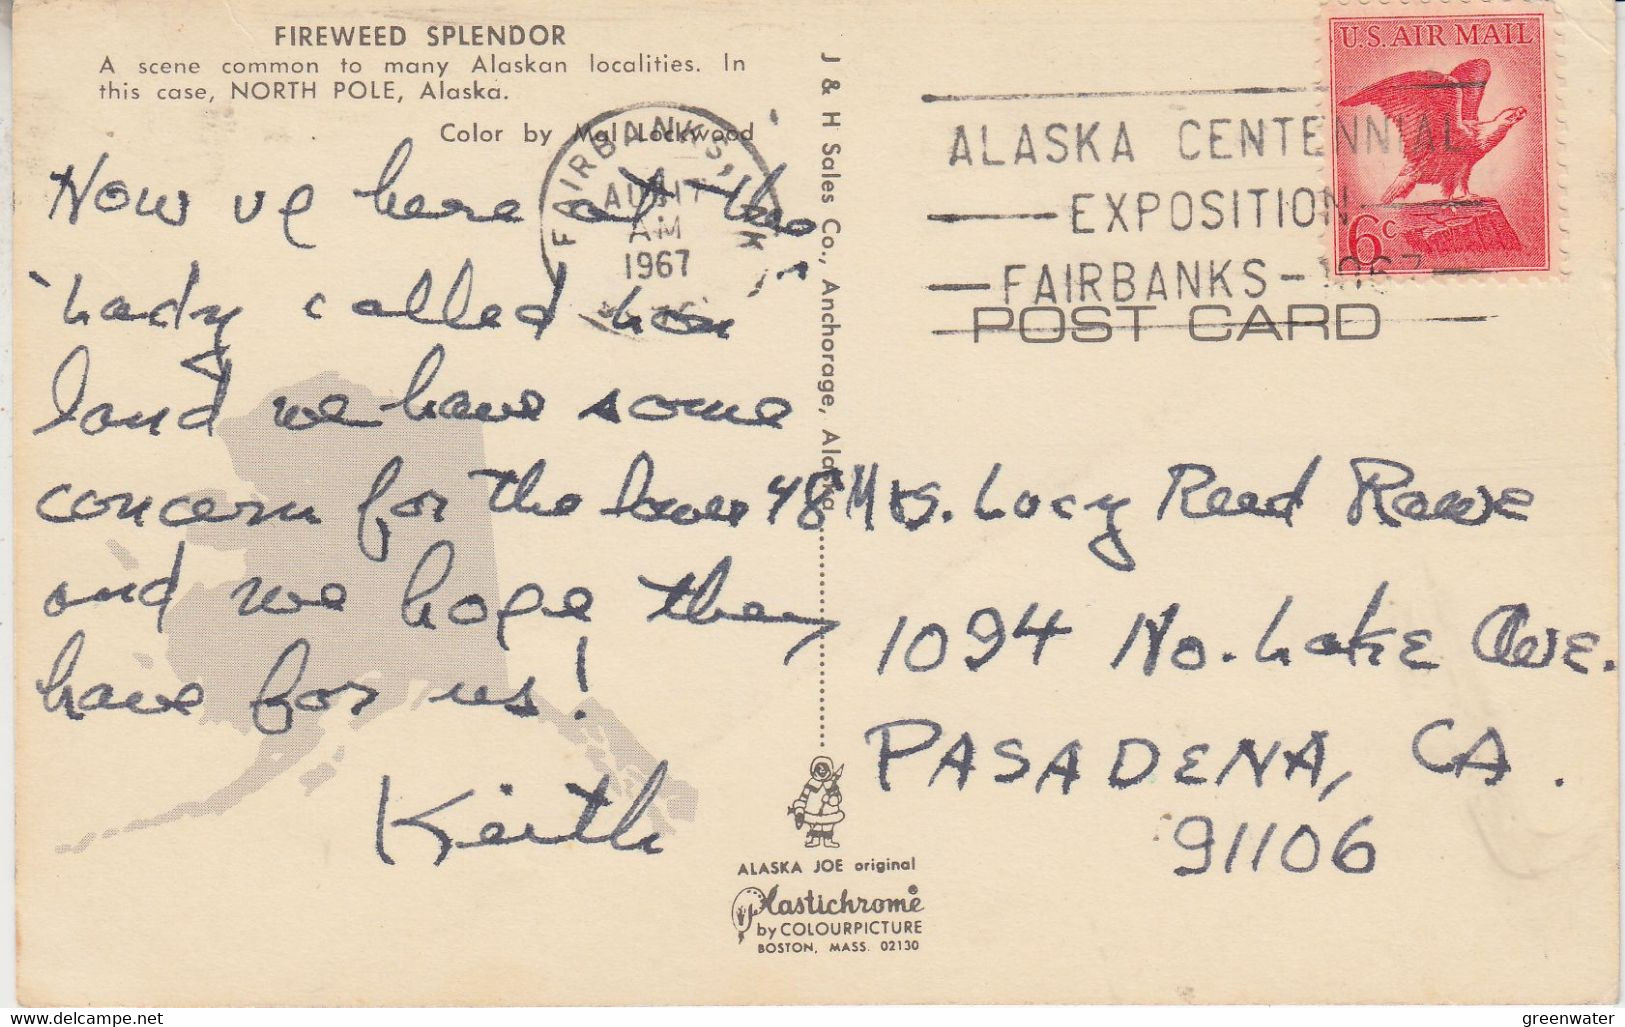 FIREWEED SPLENDOR
A scene common to many Alaskan localities. In
this case, NORTH POLE, Alaska.
Color by Mal Lockwood
Now up here at the
"Lady called Lou"
land we have some
concern for the lower 48
and we hope they
have for us!
Keith
FAIRBANKS, AK
AUG 17
AM
1967
J & H Sales Co., Anchorage, Alaska
ALASKA CENTENNIAL
EXPOSITION
FAIRBANKS - 1967
U.S. AIR MAIL
6c
POST CARD
Mrs. Lucy Reed Rowe
1094 No. Lake Ave.
PASADENA, CA.
91106
ALASKA JOE original
Plastichrome®
by COLOURPICTURE
BOSTON, MASS. 02130
delcampe.net
greenwater